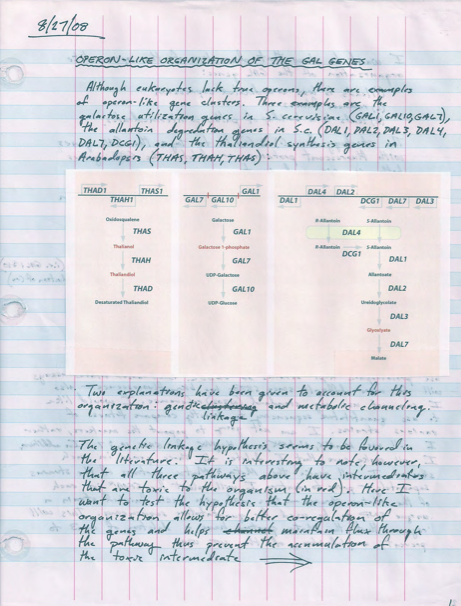 8/27/08
OPERON-LIKE ORGANIZATION OF THE GAL GENES
Although eukaryotes lack true operons, there are examples
of operon-like gene clusters. Three examples are the
galactose utilization genes in S. cerevisiae (GAL1, GAL10, GAL7),
the allantoin degradation genes in S.c. (DAL1, DAL2, DAL3, DAL4,
DAL7, DCG1), and the thaliandiol synthesis genes in
Arabadopsis (THAS, THAH, THAS):
THAD1 THAS1
THAH1
Oxidosqualene
THAS
Thalianol
THAH
Thaliandiol
THAD
Desaturated Thaliandiol
GAL1
GAL7 GAL10
Galactose
GAL1
Galactose 1-phosphate
GAL7
UDP-Galactose
GAL10
UDP-Glucose
DAL4 DAL2
DAL1 DCG1 DAL7 DAL3
R-Allantoin S-Allantoin
DAL4
R-Allantoin S-Allantoin
DCG1
DAL1
Allantoate
DAL2
Ureidoglycolate
DAL3
Glyoxylate
DAL7
Malate
Two explanations have been given to account for this
organization: genetic linkage and metabolic channeling.
The genetic linkage hypothesis seems to be favored in
the literature. It is interesting to note, however,
that all three pathways above have intermediates
that are toxic to the organism (in red). Here I
want to test the hypothesis that the operon-like
organization allows for better co-regulation of
the genes and helps maintain flux through
the pathway thus prevent the accumulation of
the toxic intermediate